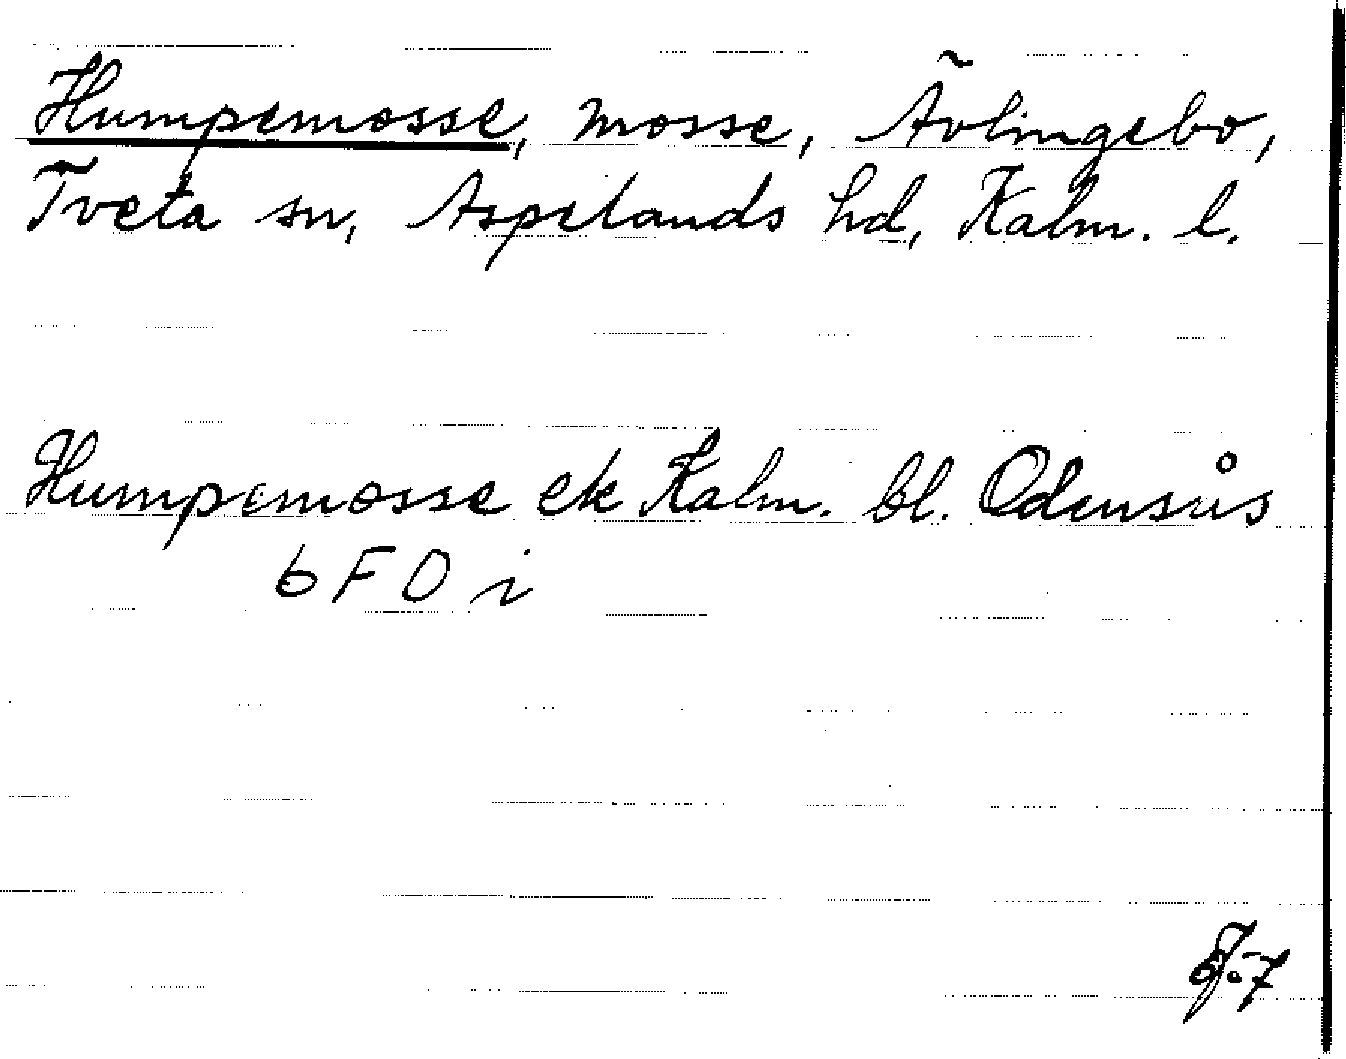 Humpemosse, mosse, Ãvlingebo,
Tveta sn, Aspelands hd, Kalm. l.
Humpemosse ek Kalm. bl. Odensås
6 F 0 i